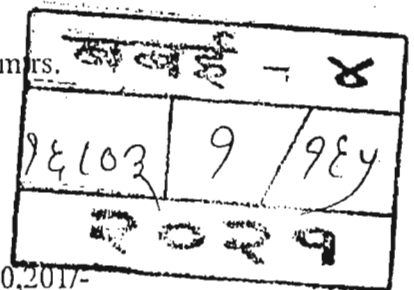 mrs.
बबई - ४
१६८०३ १/१६५
२०२१
0,201/-